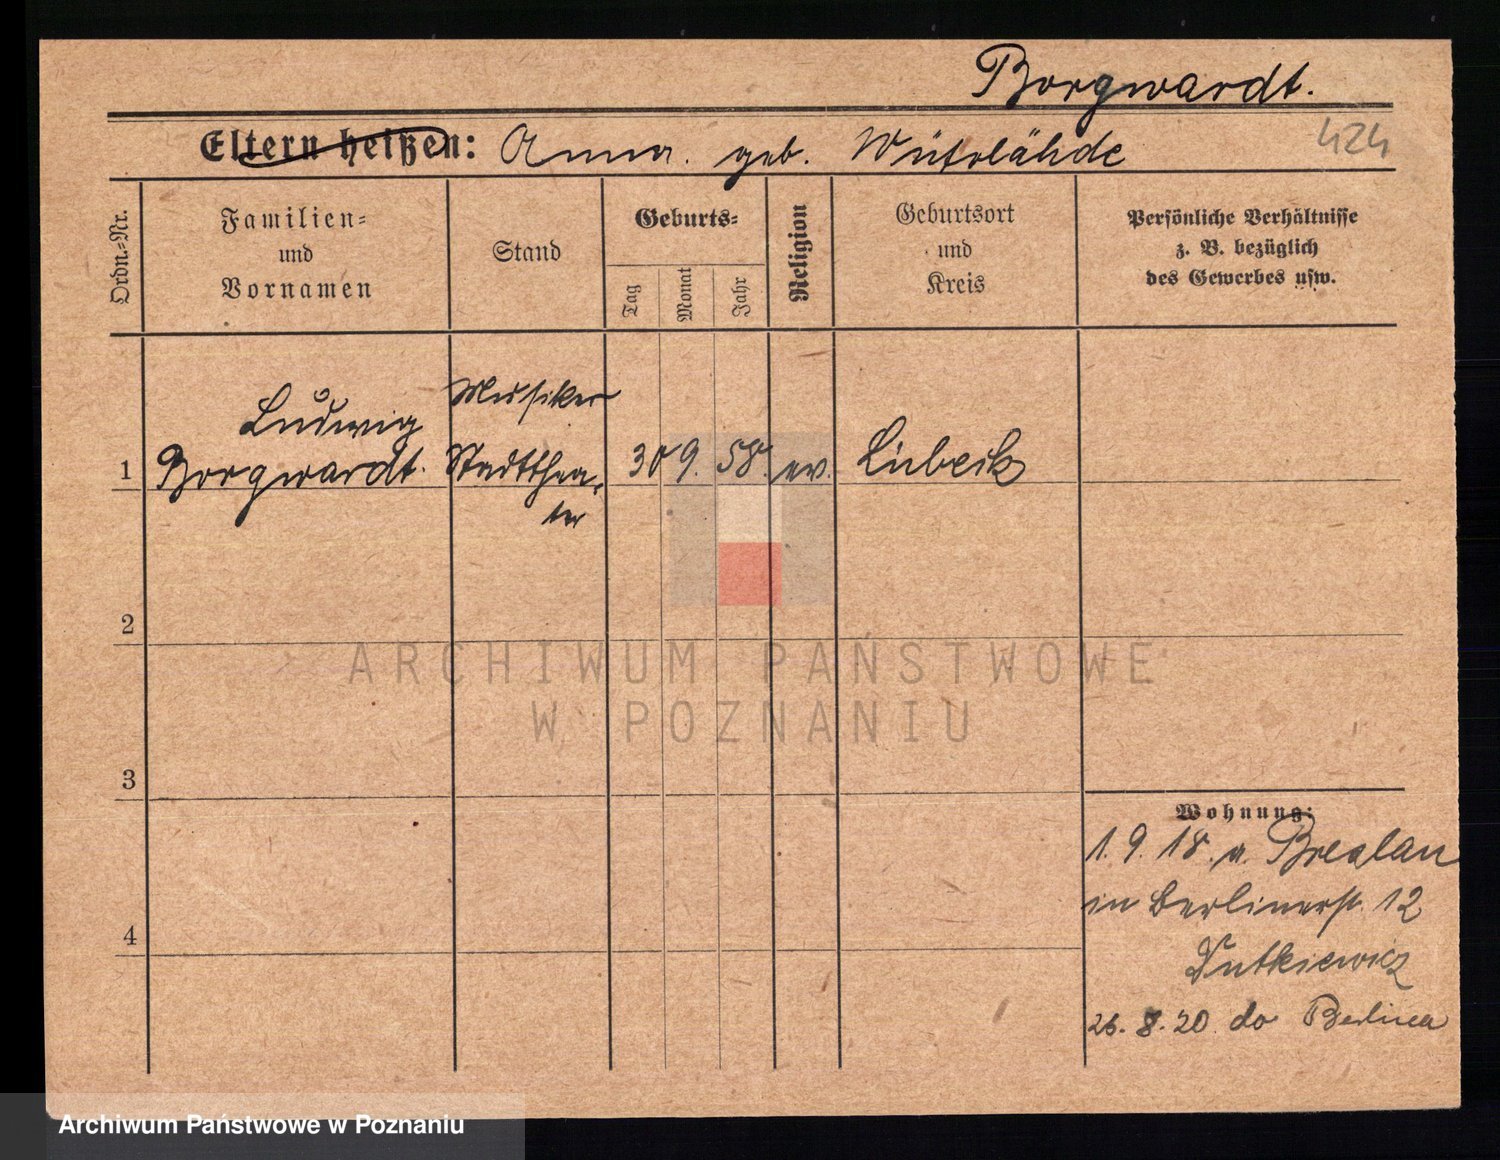 Borgwardt.
Eltern heißen: Anna. geb.
424
Ordn.=Nr.
Familien=
und
Vornamen
Stand
Geburts=
Tag
Monat
Jahr
Religion
Geburtsort
und
Kreis
Persönliche Verhältnisse
z. B. bezüglich
des Gewerbes usw.
1
Ludwig
Borgwardt.
Musiker
Stadtthea-
ter
30 9. 58. ev. Lübeck
2
3
4
Wohnung:
1. 9. 18. v. Breslau
in Berlinerst. 12
Rutkiewicz
26. 8. 20. do Berlina
ARCHIWUM PAŃSTWOWE
W POZNANIU
Archiwum Państwowe w Poznaniu